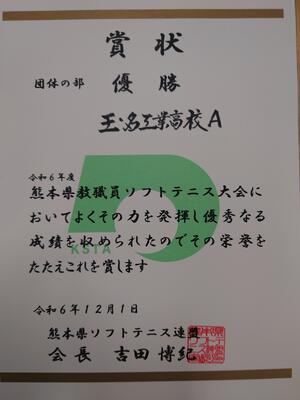 賞状
団体の部 優勝
玉名工業高校A
令和6年度
熊本県教職員ソフトテニス大会に
おいてよくその力を発揮し優秀なる
成績を収められたのでその栄誉を
KSTA
たたえこれを賞します
令和6年12月1日
熊本県ソフトテニス連盟
会長 吉田 博紀